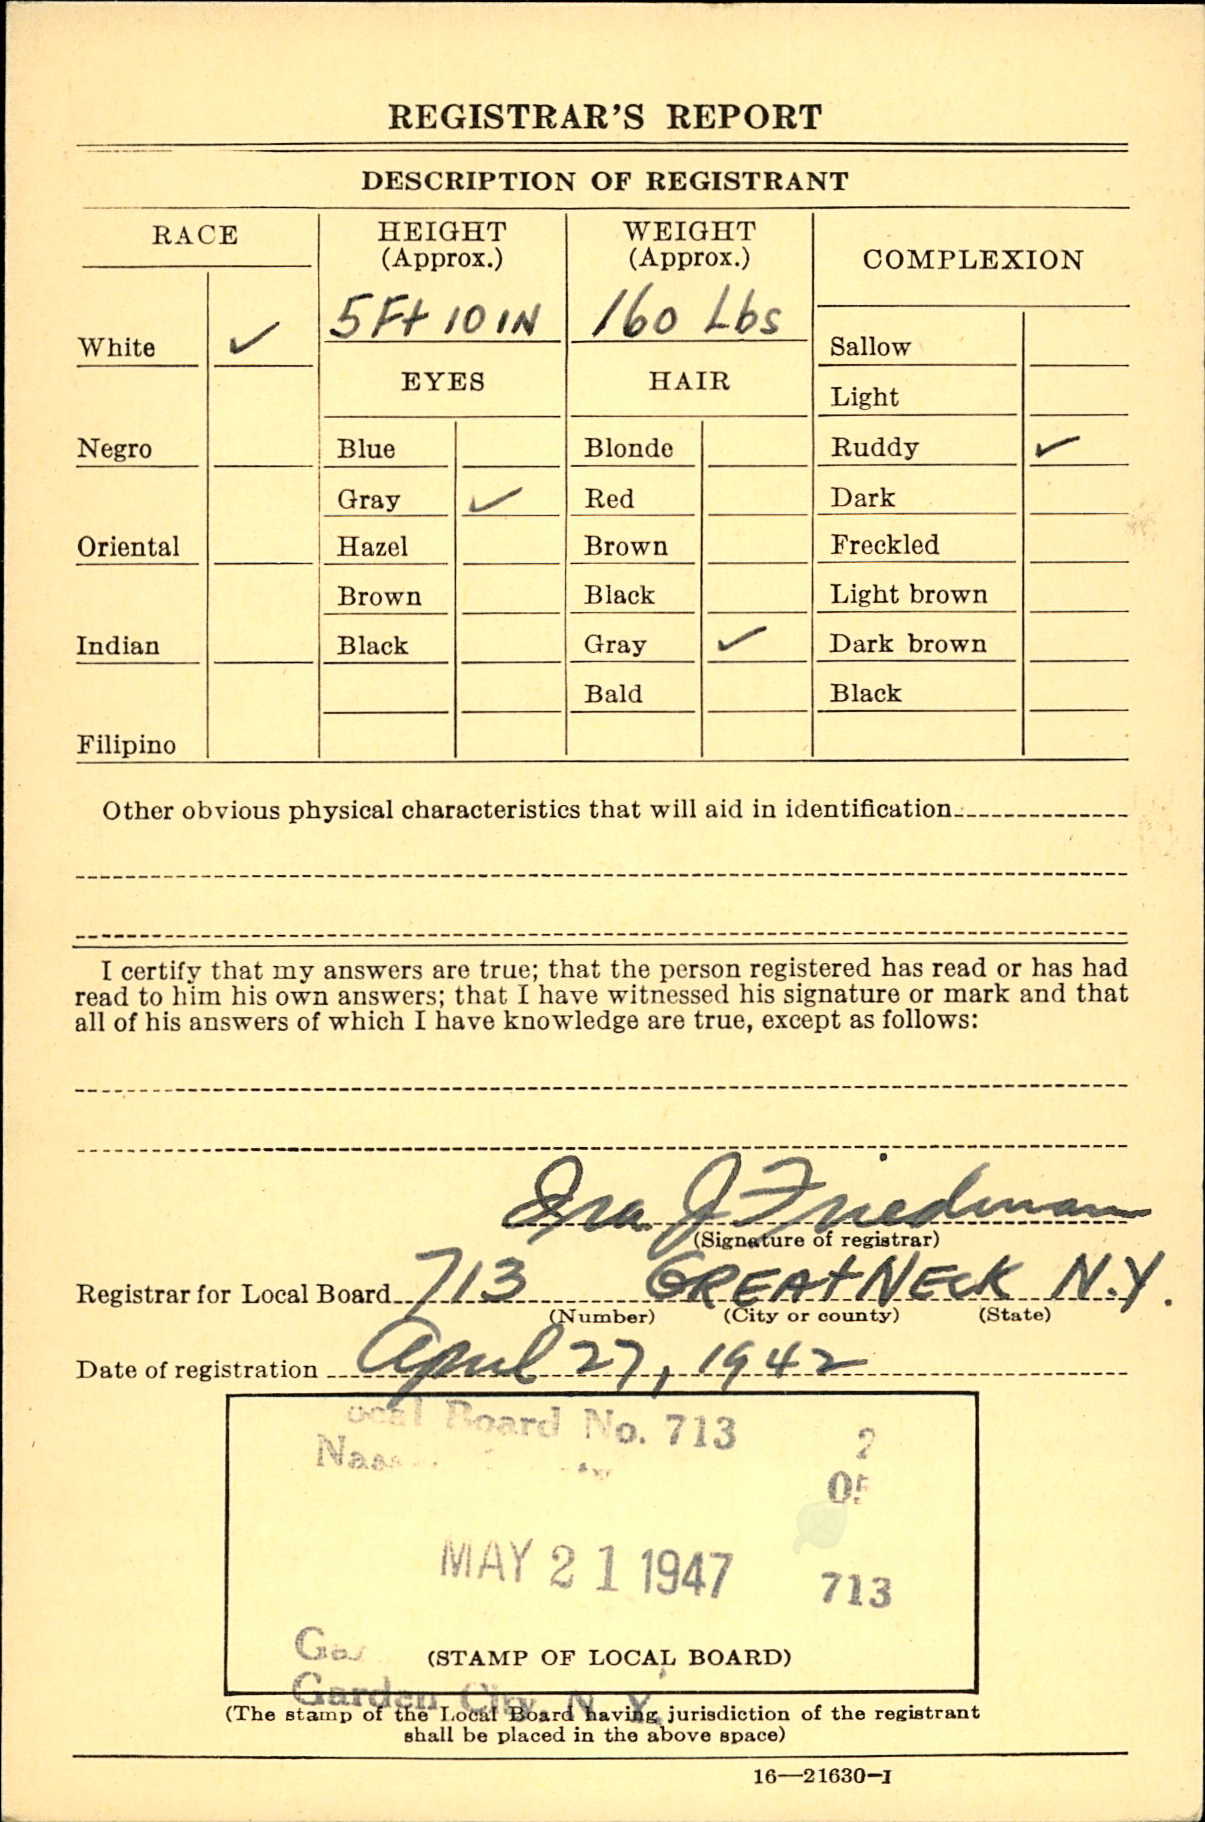 REGISTRAR'S REPORT
DESCRIPTION OF REGISTRANT
RACE
HEIGHT
(Approx.)
WEIGHT
(Approx.)
COMPLEXION
5 Ft 10 IN
160 Lbs
White ✓
Sallow
EYES
HAIR
Light
Negro
Blue
Blonde
Ruddy ✓
Gray ✓
Red
Dark
Oriental
Hazel
Brown
Freckled
Brown
Black
Light brown
Indian
Black
Gray ✓
Dark brown
Bald
Black
Filipino
Other obvious physical characteristics that will aid in identification
I certify that my answers are true; that the person registered has read or has had
read to him his own answers; that I have witnessed his signature or mark and that
all of his answers of which I have knowledge are true, except as follows:
Ira J Friedman
(Signature of registrar)
Registrar for Local Board 713 GREAT NECK N.Y.
(Number) (City or county) (State)
Date of registration April 27, 1942
Local Board No. 713
2
05
MAY 21 1947
713
(STAMP OF LOCAL BOARD)
Garden City, N. Y.
(The stamp of the Local Board having jurisdiction of the registrant
shall be placed in the above space)
16—21630-1